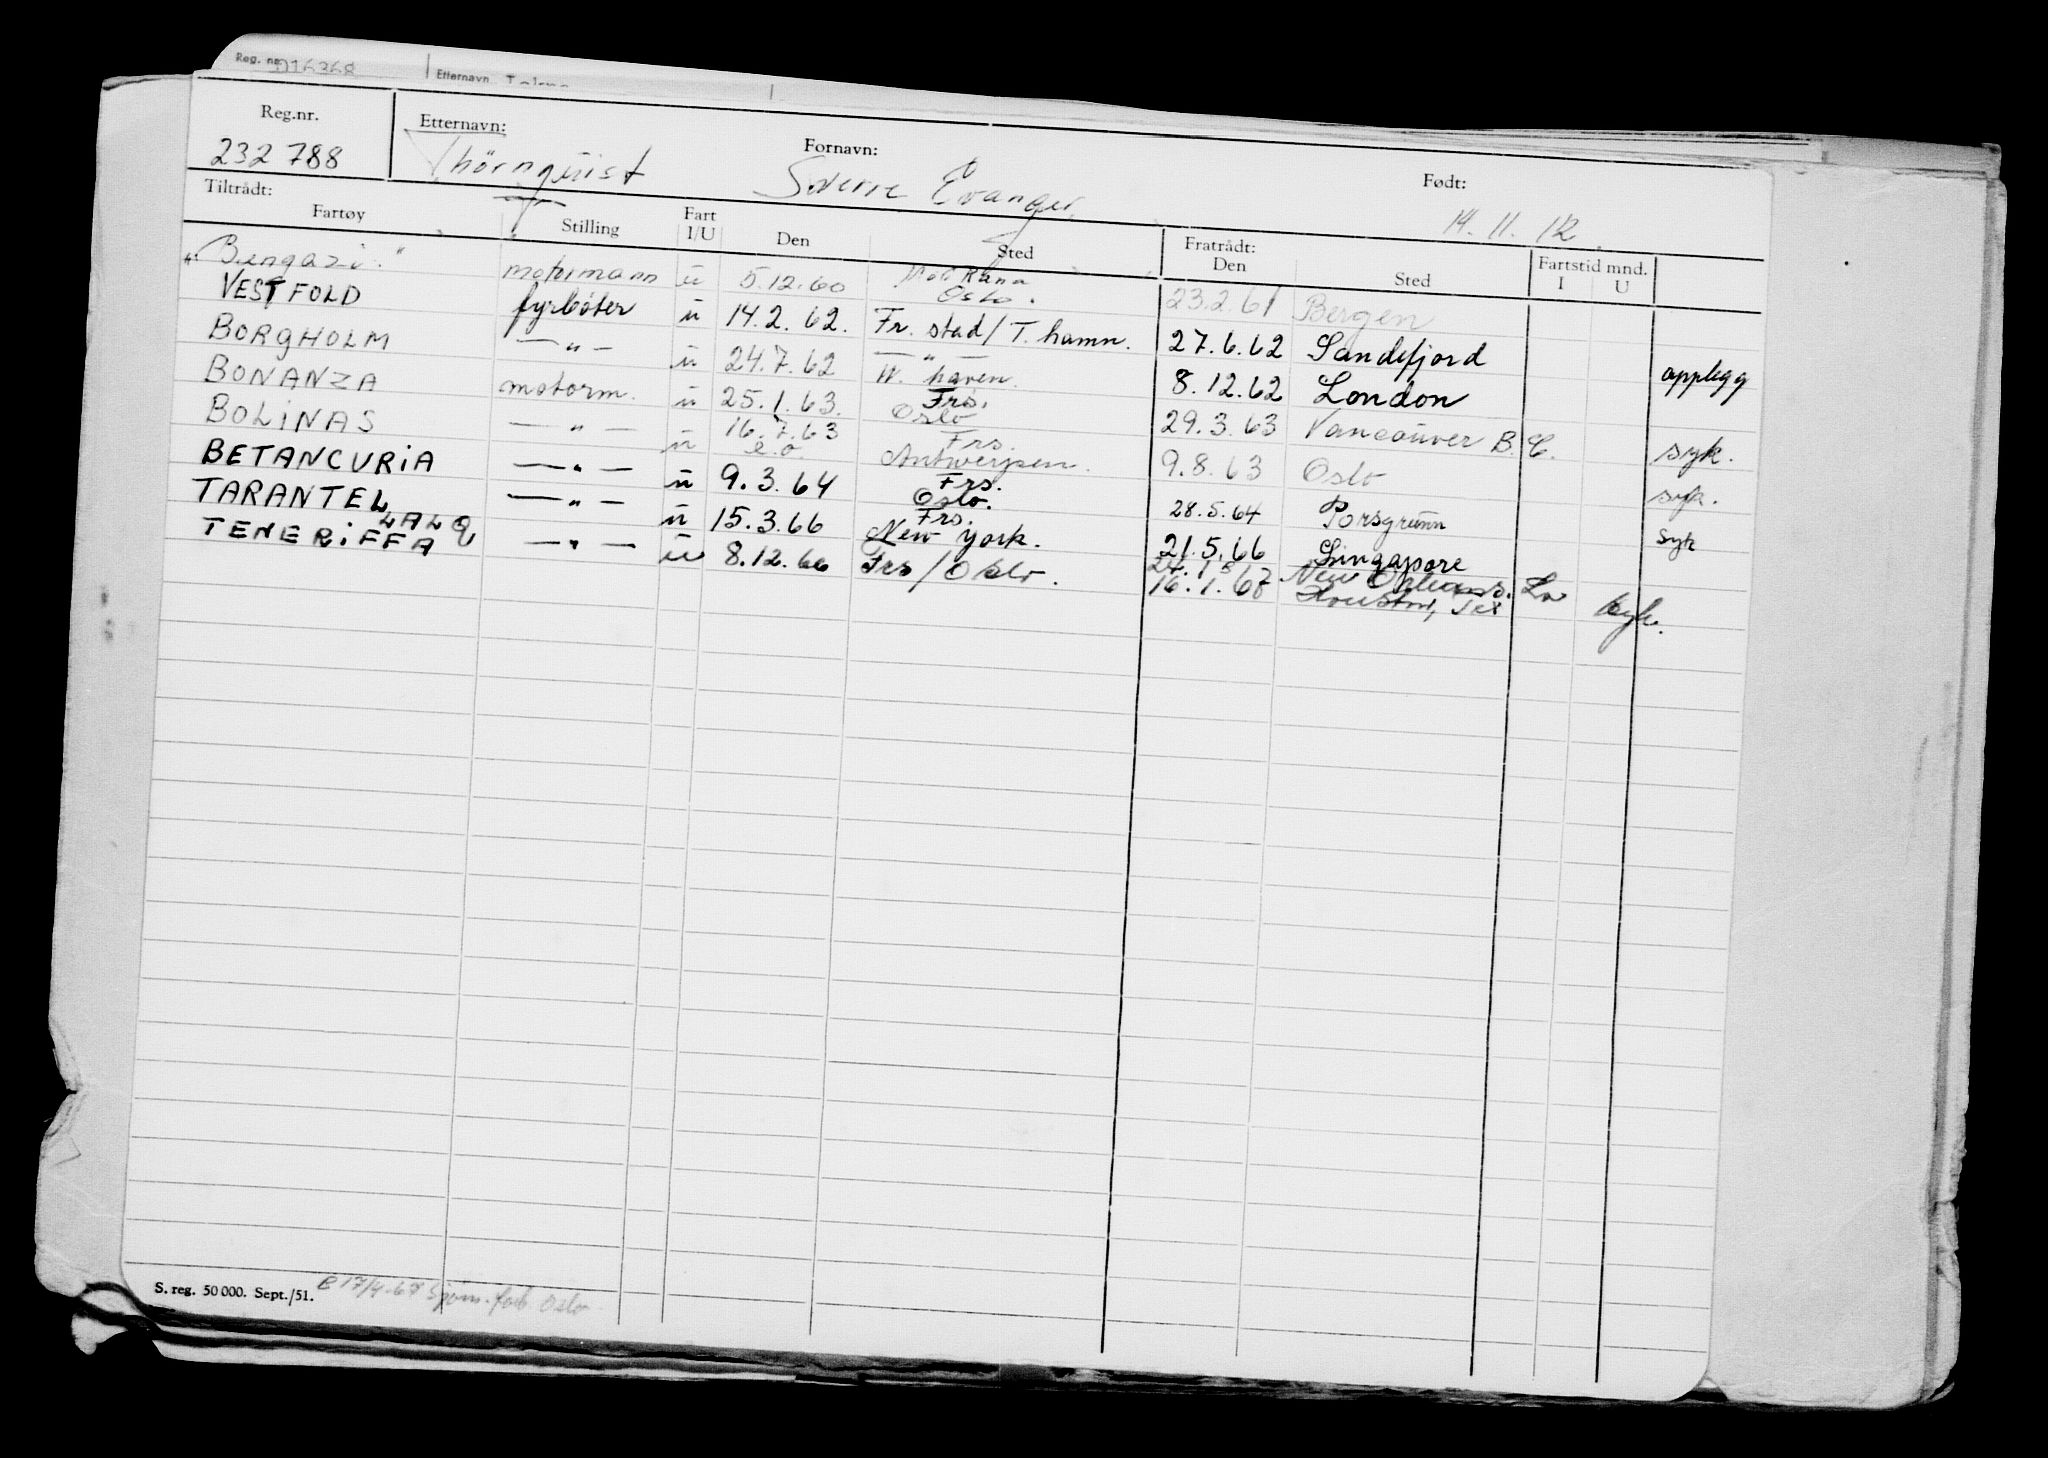 Reg. nr. 016368 Etternavn
Reg.nr. Etternavn: Fornavn: Født:
232 788 Thörnquist Sverre Evanger 14. 11. 12.
Tiltrådt: Fratrådt:
Fartøy Stilling Fart I/U Den Sted Den Sted Fartstid mnd. I U
"Bengazi." motormann u 5.12.60 Mo i Rana Oslo. 23.2.61 Bergen
VESTFOLD fyrbøter u 14.2.62. Fr. stad/T. hamn. 27.6.62 Sandefjord opplegg
BORGHOLM — " — u 24.7.62 — " — W. haven. 8.12.62 London
BONANZA motorm. u 25.1.63. Frs. Oslo 29.3.63 Vancouver B.C. syk.
BOLINAS — " — u 16.7.63 e.o. Frs. Antwerpen. 9.8.63 Oslo syk.
BETANCURIA — " — u 9.3.64 Frs. Oslo. 28.5.64 Porsgrunn syk
TARANTEL — " — u 15.3.66 Frs. New York. 21.5.66 Singapore
LALQ
TENERIFFA — " — u 8.12.66 Frs/Oslo. 16.1.67 New Orleans. La syk.
Houston, Tex
S. reg. 50 000. Sept./51. B 17/4-67 Sjøm. forb. Oslo